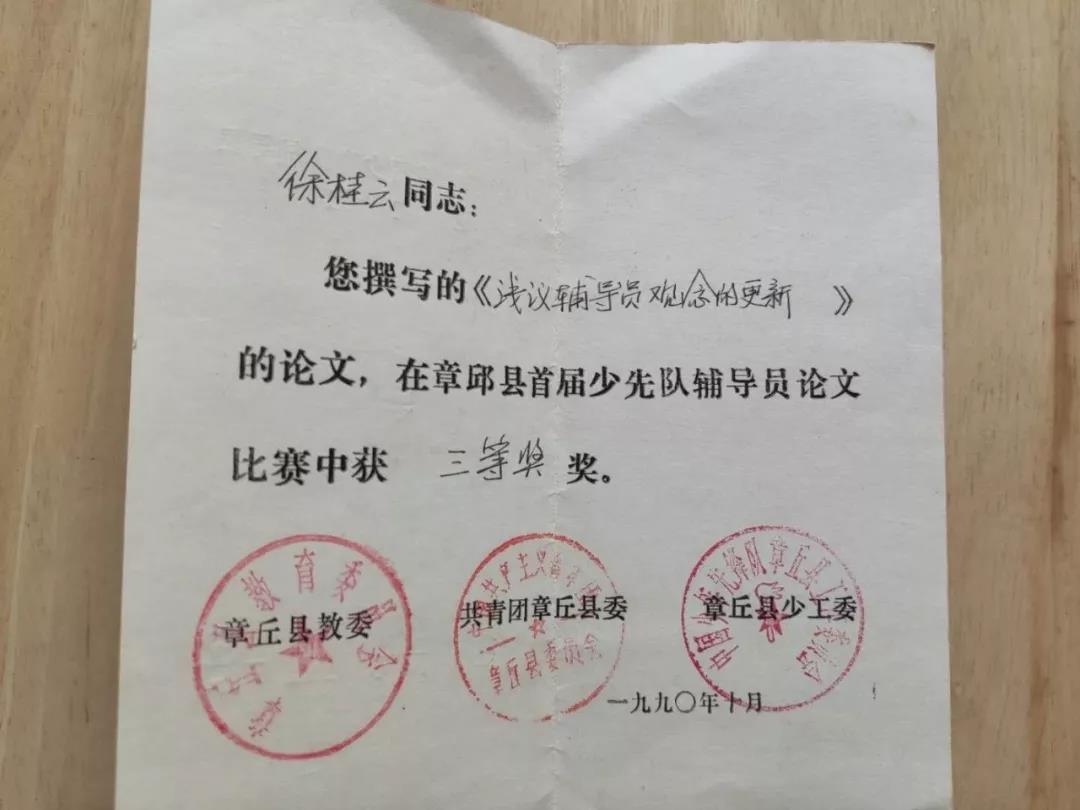 徐桂云同志：
您撰写的《浅议辅导员观念的更新 》
的论文，在章邱县首届少先队辅导员论文
比赛中获 三等奖 奖。
章丘县教委 共青团章丘县委 章丘县少工委
教育委员会
章丘县委员会
中国少年先锋队章丘县工作委员会
一九九〇年十月